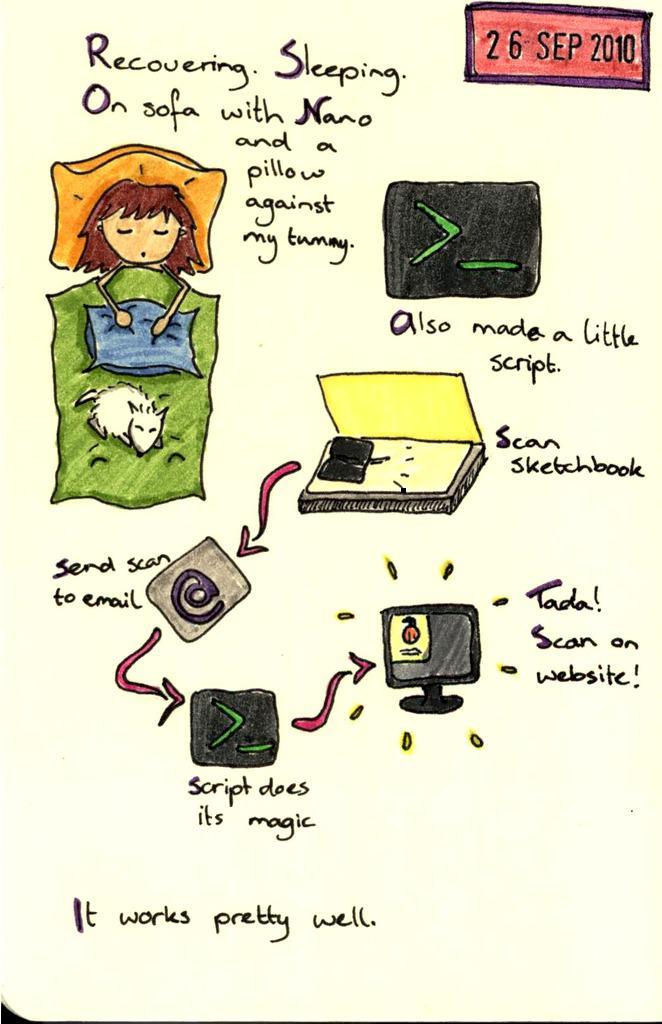 26 SEP 2010
Recovering. Sleeping.
On sofa with Nano
and a
pillow
against
my tummy.
Also made a little
script.
Scan
sketchbook
Send scan
to email
@
Script does
its magic
Tada!
Scan on
website!
It works pretty well.